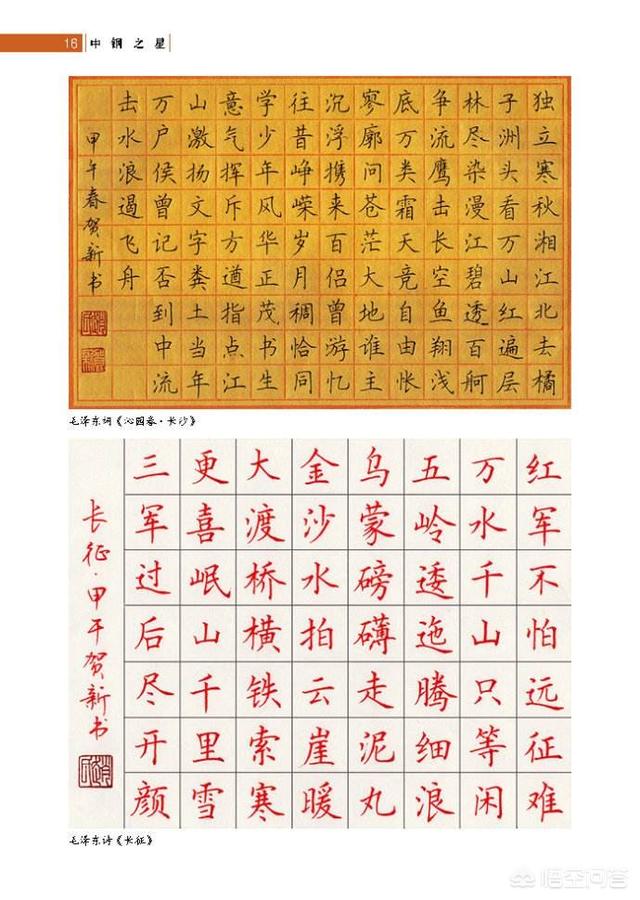 16 中钢之星
独立寒秋湘江北去橘
子洲头看万山红遍层
林尽染漫江碧透百舸
争流鹰击长空鱼翔浅
底万类霜天竞自由怅
寥廓问苍茫大地谁主
沉浮携来百侣曾游忆
往昔峥嵘岁月稠恰同
学少年风华正茂书生
意气挥斥方遒指点江
山激扬文字粪土当年
万户侯曾记否到中流
击水浪遏飞舟
甲午春贺新书
毛泽东词《沁园春·长沙》
红军不怕远征难
万水千山只等闲
五岭逶迤腾细浪
乌蒙磅礴走泥丸
金沙水拍云崖暖
大渡桥横铁索寒
更喜岷山千里雪
三军过后尽开颜
长征·甲午贺新书
毛泽东诗《长征》
悟空问答